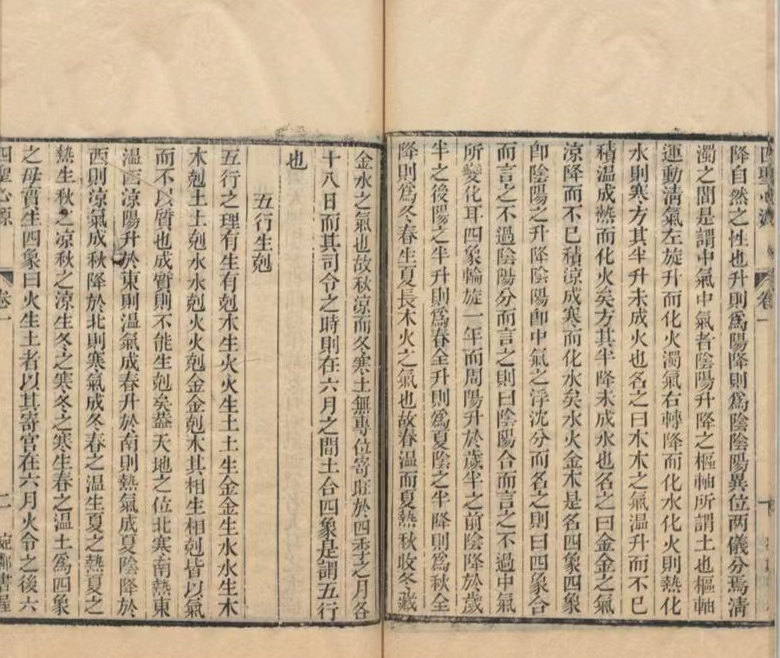 四聖心源 卷一
降自然之性也升則為陽降則為陰陰陽異位兩儀分焉清
濁之間是謂中氣中氣者陰陽升降之樞軸所謂土也樞軸
運動清氣左旋升而化火濁氣右轉降而化水化火則熱化
水則寒方其半升未成火也名之曰木木之氣溫升而不已
積溫成熱而化火矣方其半降未成水也名之曰金金之氣
涼降而不已積涼成寒而化水矣水火金木是名四象四象
卽陰陽之升降陰陽卽中氣之浮沈分而名之則曰四象合
而言之不過陰陽分而言之則曰陰陽合而言之不過中氣
所變化耳四象輪旋一年而周陽升於歲半之前陰降於歲
半之後陽之半升則為春全升則為夏陰之半降則為秋全
降則為冬春生夏長木火之氣也故春溫而夏熱秋收冬藏
金水之氣也故秋涼而冬寒土無專位寄旺於四季之月各
十八日而其司令之時則在六月之間土合四象是謂五行
也
五行生剋
五行之理有生有剋木生火火生土土生金金生水水生木
木剋土土剋水水剋火火剋金金剋木其相生相剋皆以氣
而不以質也成質則不能生剋矣蓋天地之位北寒南熱東
溫西涼陽升於東則溫氣成春升於南則熱氣成夏陰降於
西則涼氣成秋降於北則寒氣成冬春之溫生夏之熱夏之
熱生秋之涼秋之涼生冬之寒冬之寒生春之溫土為四象
之母實生四象曰火生土者以其寄宮在六月火令之後六
四聖心源 卷一 二